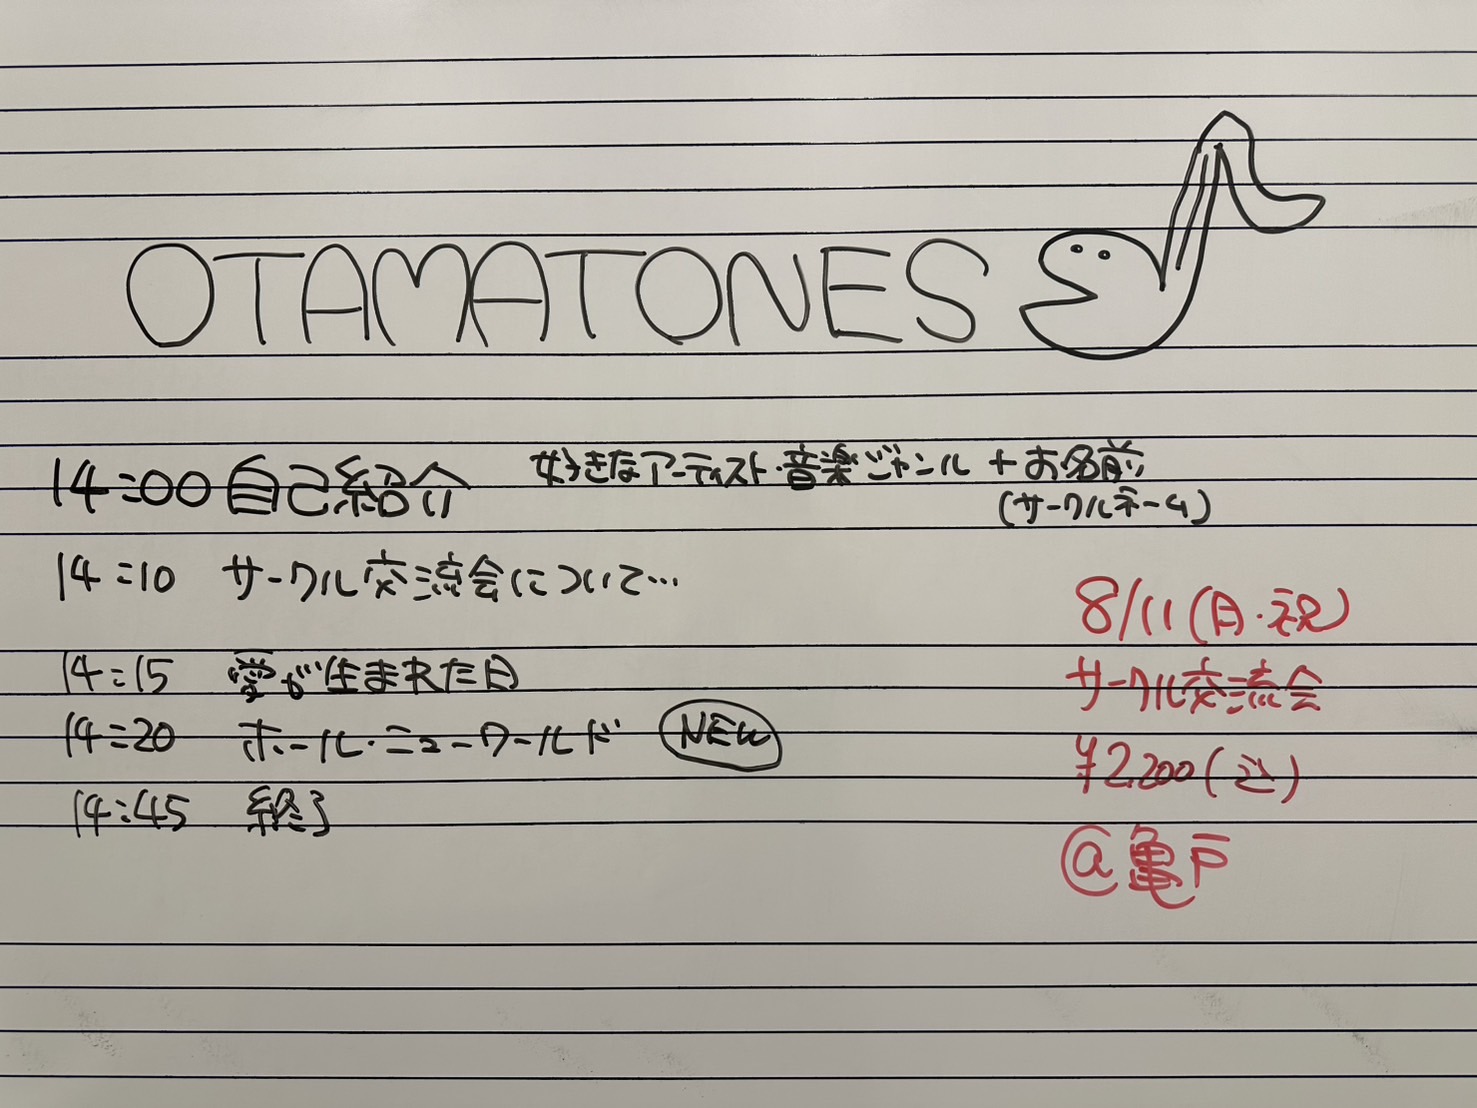 OTAMATONES
14:00 自己紹介 好きなアーティスト・音楽ジャンル + お名前
(サークルネーム)
14:10 サークル交流会について…
14:15 愛が生まれた日
14:20 ホール・ニューワールド NEW
14:45 終了
8/11(月・祝)
サークル交流会
¥2,200(込)
@亀戸